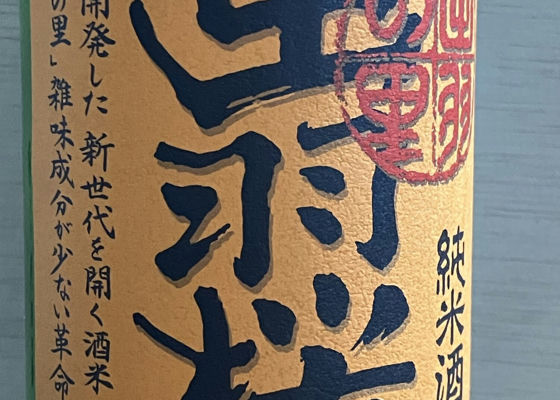 出羽の里
純米酒
出羽桜
開発した 新世代を開く酒米
の里」雑味成分が少ない革命